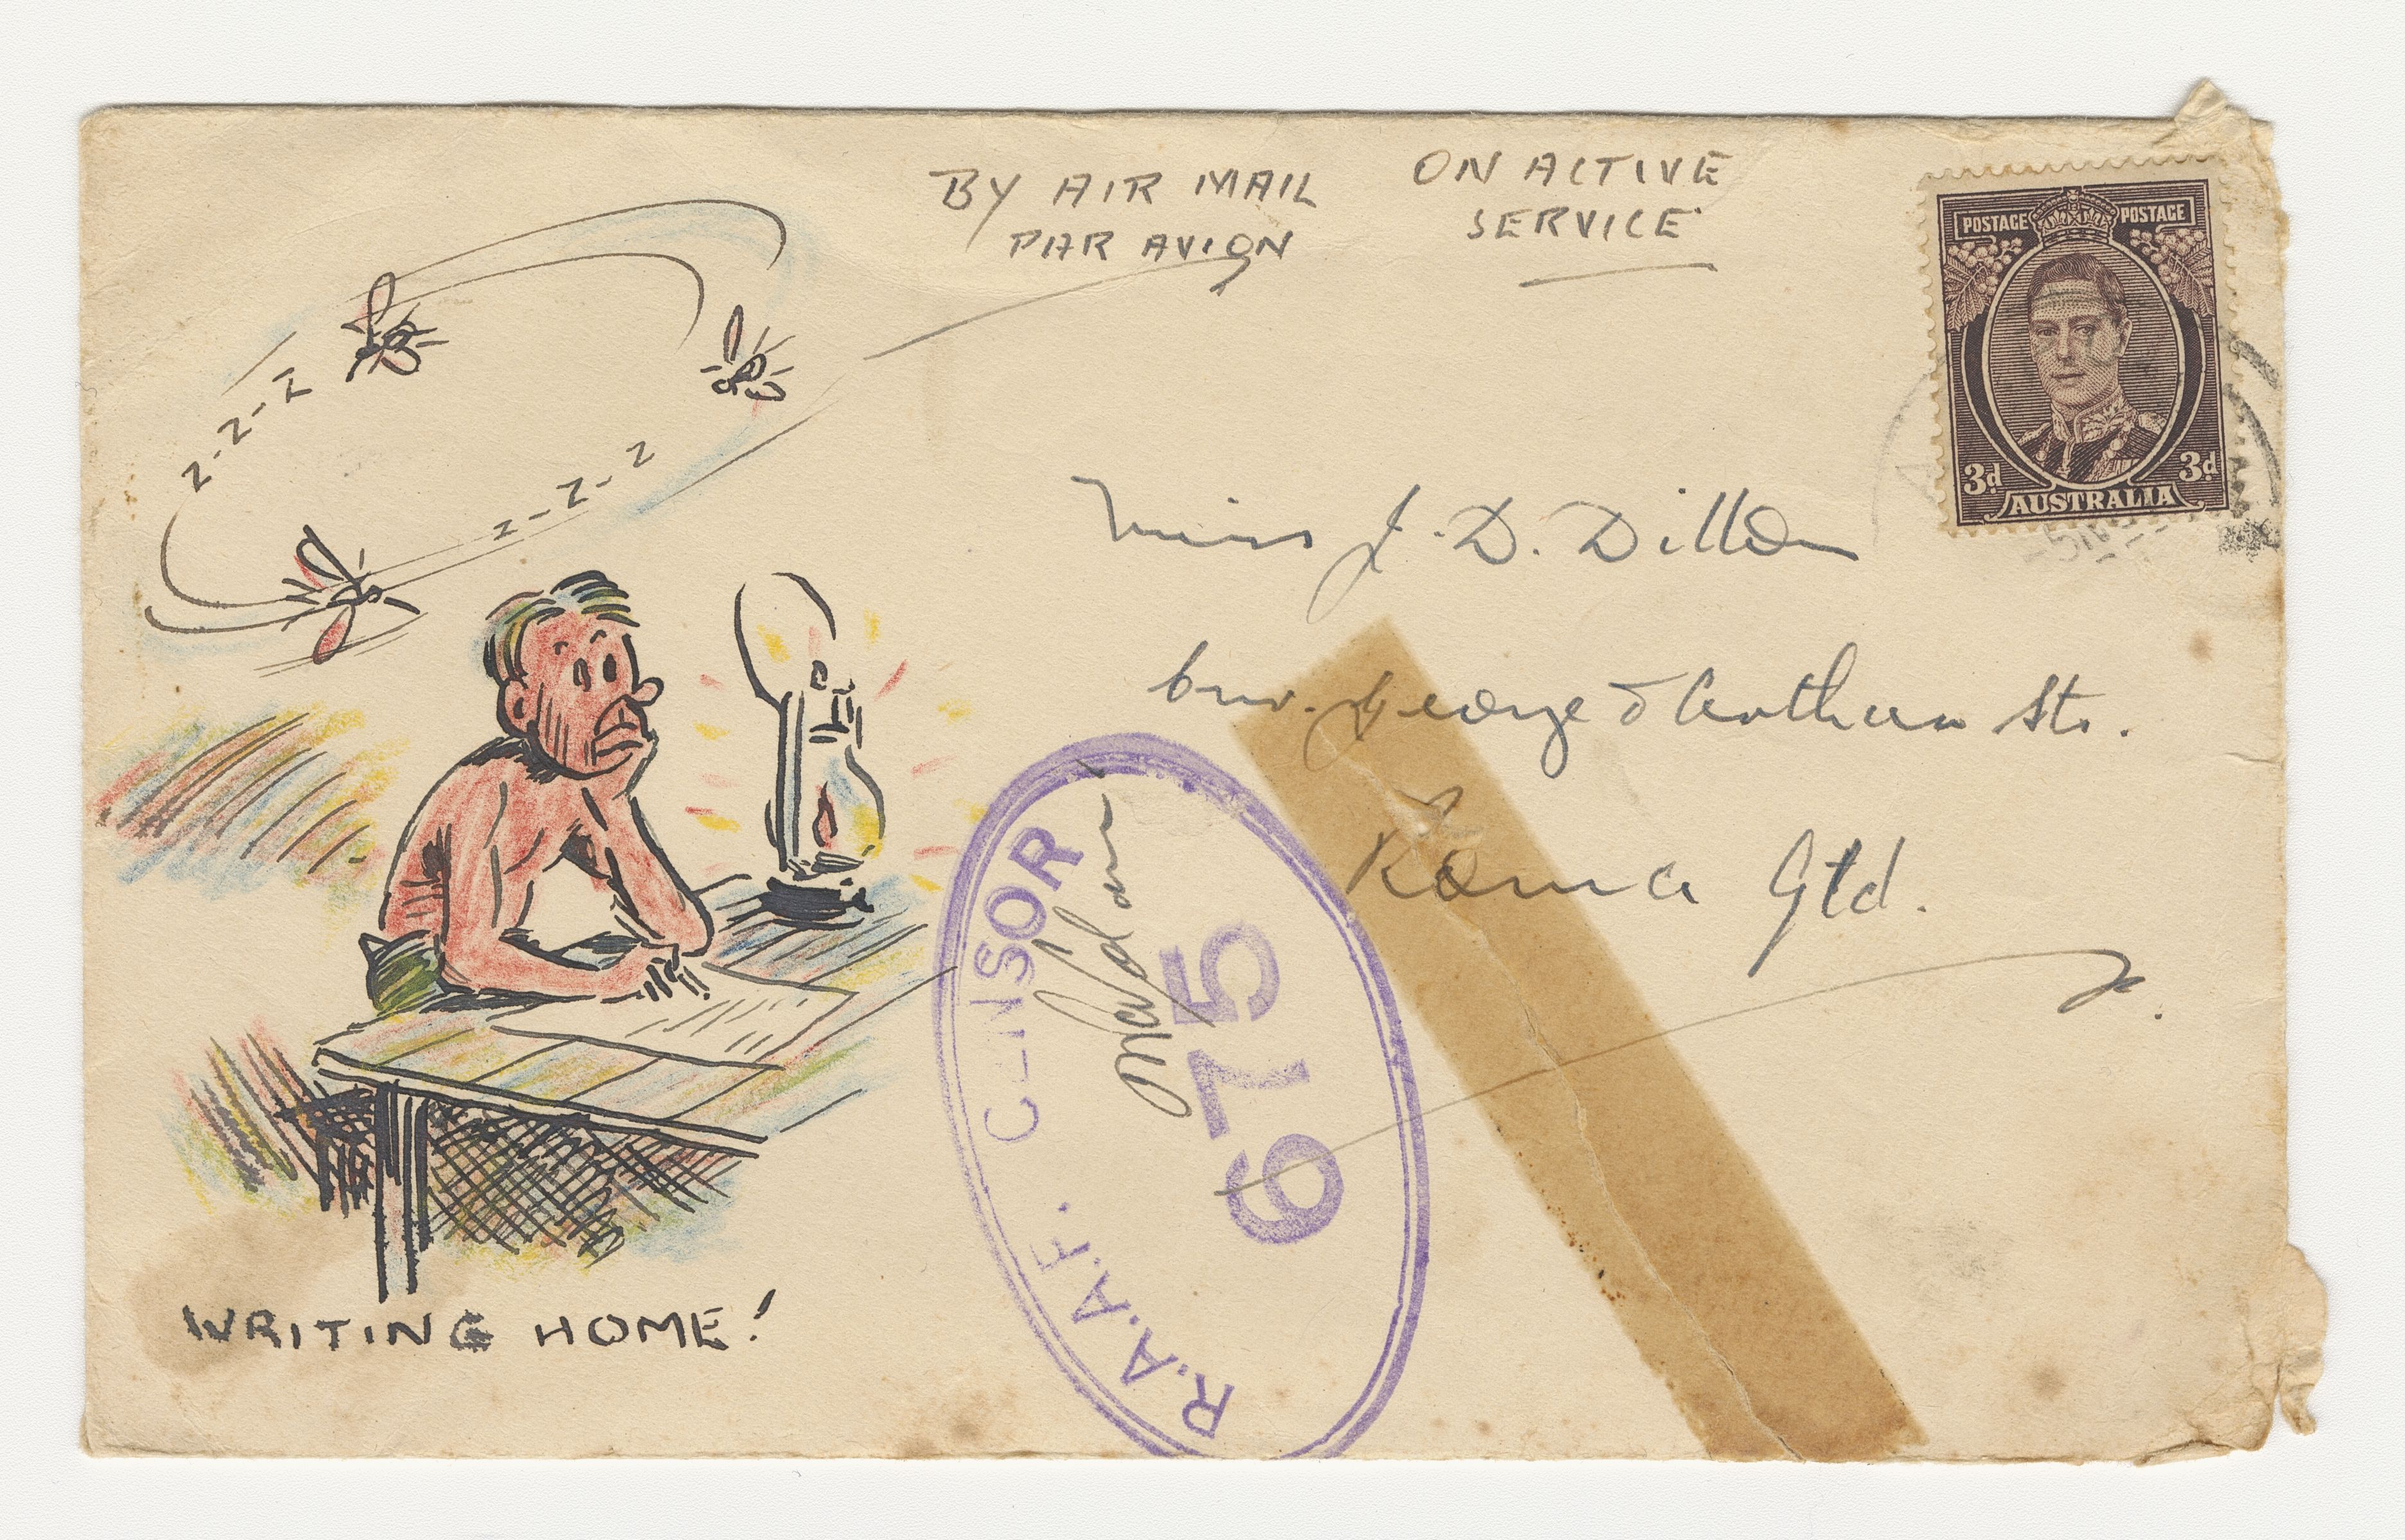 BY AIR MAIL
PAR AVION
ON ACTIVE
SERVICE
POSTAGE POSTAGE
3d 3d
AUSTRALIA
Z-Z-Z-Z
Z-Z-Z-Z
Miss J. D. Dillon
cnr. George & Arthur Sts.
Roma Qld.
R.A.A.F. CENSOR
675
WRITING HOME!